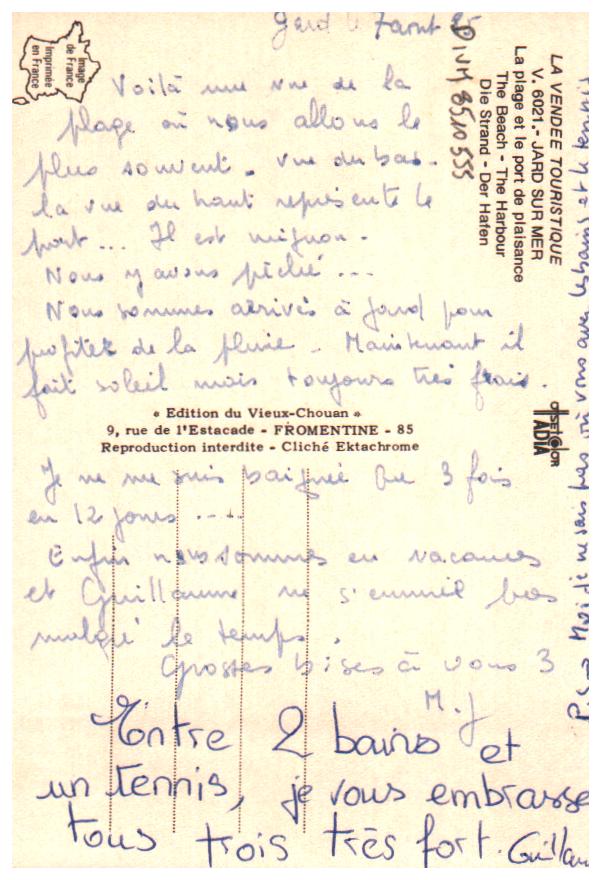 Jard le 7 août 85
Voilà une vue de la
plage où nous allons le
plus souvent. vue du bas.
la vue du haut représente le
port... Il est mignon.
Nous y avons pêché ...
Nous sommes arrivés à Jard pour
profiter de la pluie. Maintenant il
fait soleil mais toujours très frais.
« Edition du Vieux-Chouan »
9, rue de l'Estacade - FROMENTINE - 85
Reproduction interdite - Cliché Ektachrome
Je ne me suis baignée que 3 fois
en 12 jours ....
Enfin nous sommes en vacances
et Guillaume ne s'ennuie pas
malgré le temps.
Grosses bises à vous 3
M. J
Entre 2 bains et
un tennis, je vous embrasse
tous trois très fort. Guillau
Image
de France
Imprimée
en France
LA VENDEE TOURISTIQUE
V. 6021.- JARD SUR MER
La plage et le port de plaisance
The Beach - The Harbour
Die Strand - Der Hafen
DIVM 8510555
OFFSET COLOR
ADIA
P.S → Moi je ne sais pas où vous avec les bains et le tennis